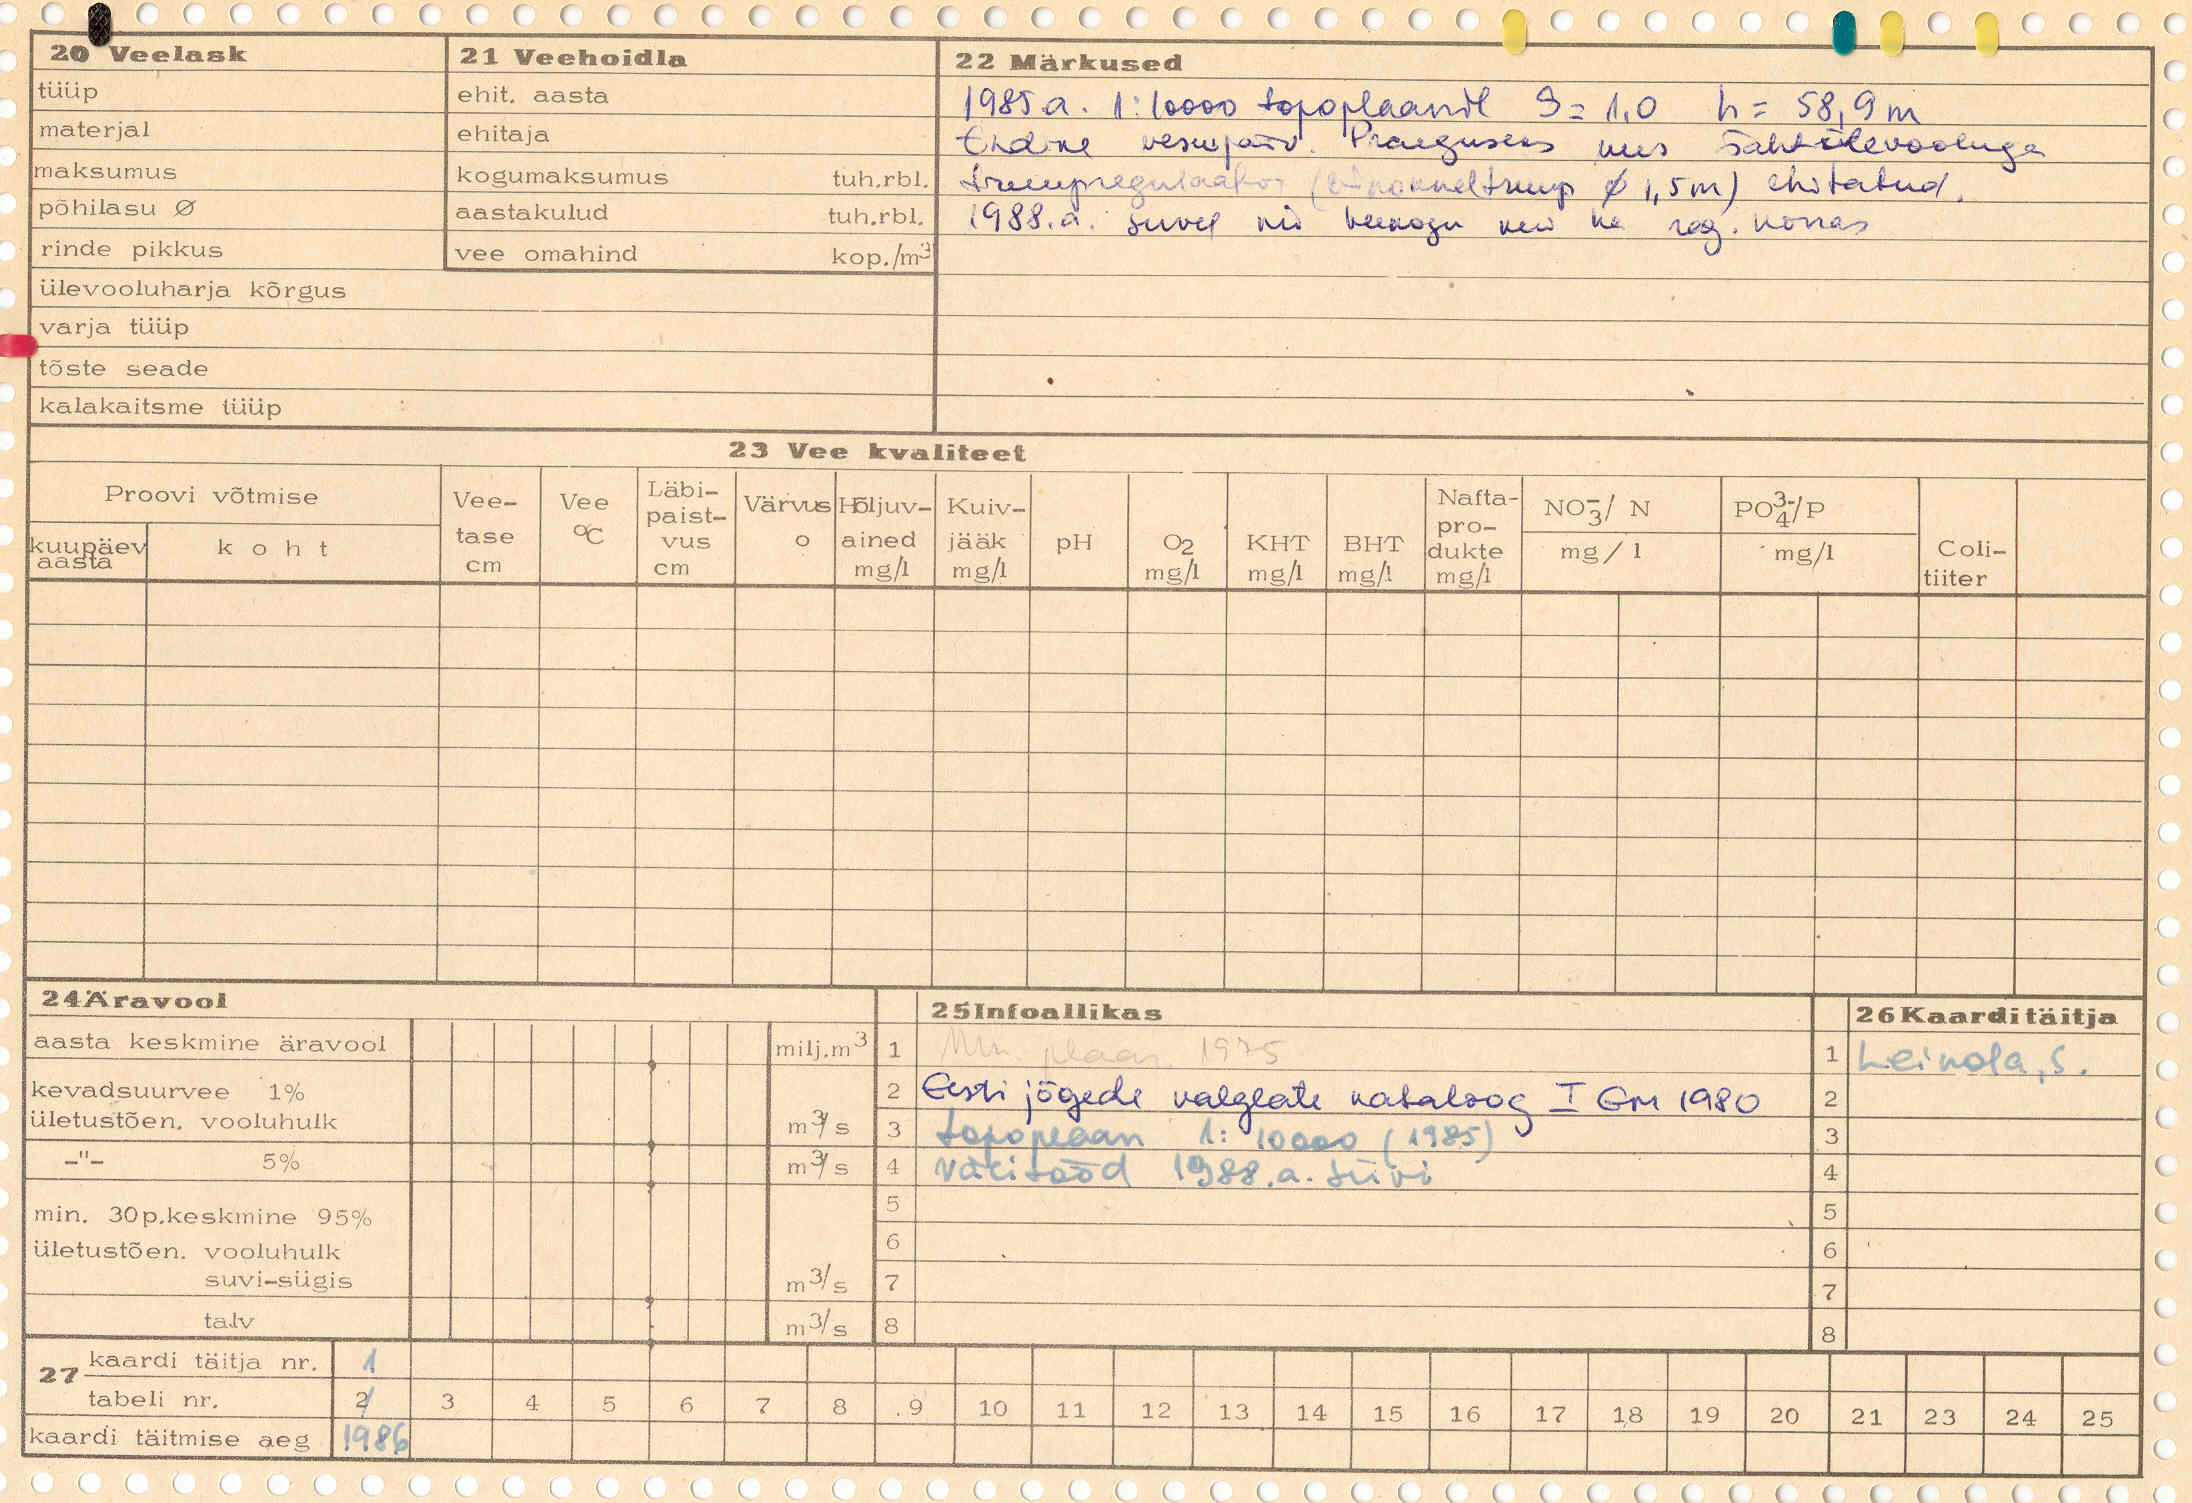 20 Veelask
tüüp
materjal
maksumus
põhilasu Ø
rinde pikkus
ülevooluharja kõrgus
varja tüüp
tõste seade
kalakaitsme tüüp
21 Veehoidla
ehit. aasta
ehitaja
kogumaksumus tuh.rbl.
aastakulud tuh.rbl.
vee omahind kop./m³
22 Märkused
1985.a. 1:10000 topoplaanil S = 1,0 h = 58,9 m
Endine vesepaisu. Praeguseks uus šahtülevooluga
truupregulaator ( Ø 1,5m) ehitatud.
1988.a. suvel nii veekogu kui ka reg. korras
23 Vee kvaliteet
Proovi võtmise
kuupäev aasta
koht
Vee-tase cm
Vee °C
Läbi-paist-vus cm
Värvus o
Hõljuv-ained mg/l
Kuiv-jääk mg/l
pH
O2 mg/l
KHT mg/l
BHT mg/l
Nafta-pro-dukte mg/l
NO₃⁻/ N mg/l
PO₄³⁻/P mg/l
Coli-tiiter
24 Äravool
aasta keskmine äravool milj.m³
kevadsuurvee 1%
ületustõen. vooluhulk m³/s
-"- 5% m³/s
min. 30p.keskmine 95%
ületustõen. vooluhulk
suvi-sügis m³/s
talv m³/s
25 Infoallikas
1 plaan 1975
2 Eesti jõgede valglate kataloog I Gm 1980
3 topoplaan 1:10000 (1985)
4 välitööd 1988.a. suvi
5
6
7
8
26 Kaarditäitja
1 Leinola, S.
2
3
4
5
6
7
8
27 kaardi täitja nr. 1
tabeli nr. 2 3 4 5 6 7 8 9 10 11 12 13 14 15 16 17 18 19 20 21 23 24 25
kaardi täitmise aeg 1986